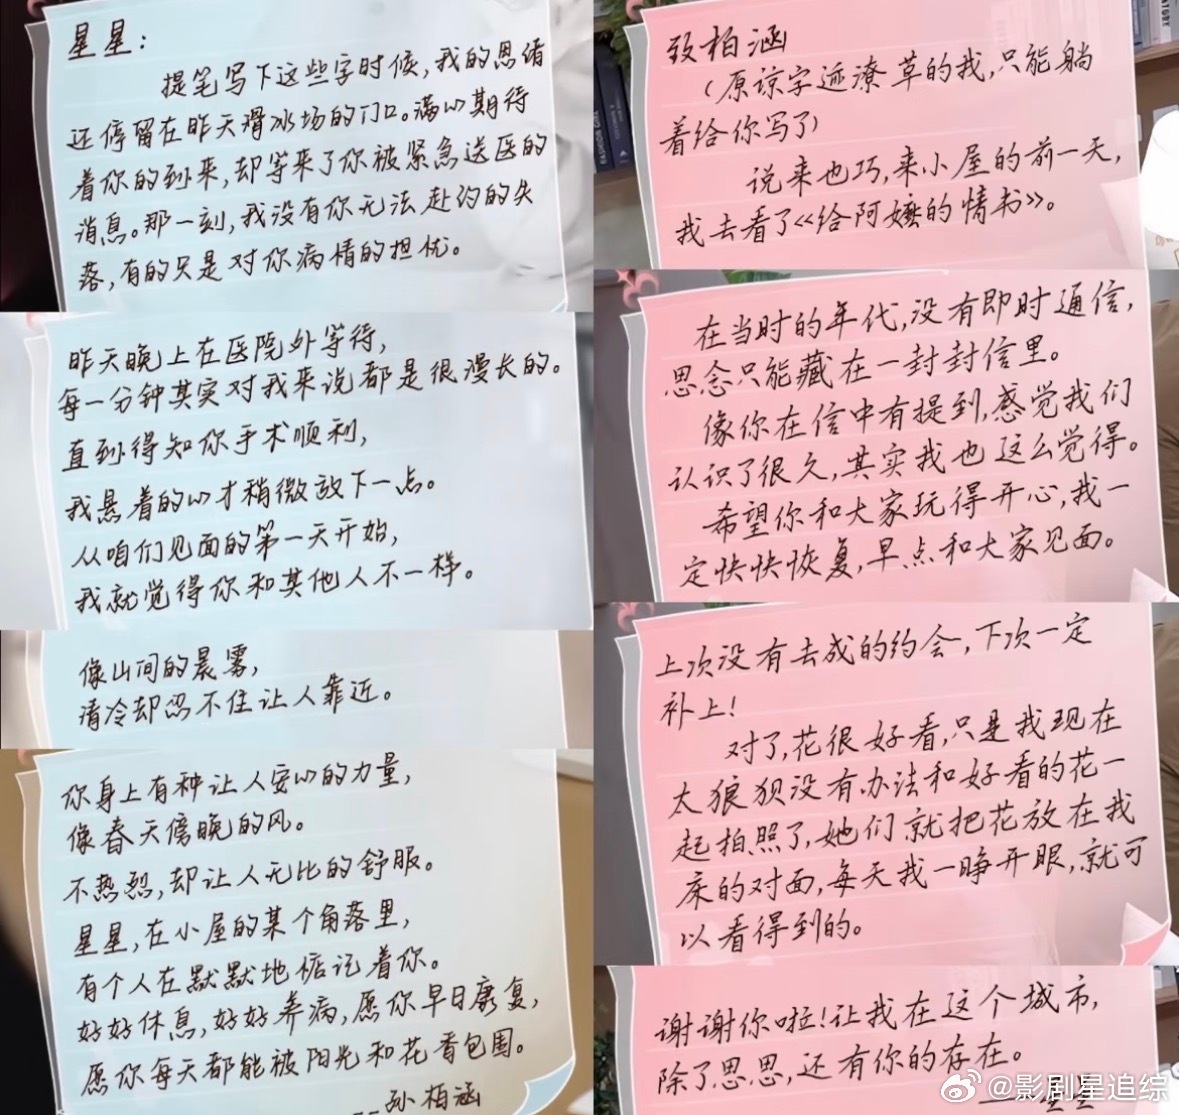 星星：
提笔写下这些字时候，我的思绪
还停留在昨天滑冰场的门口。满心期待
着你的到来，却等来了你被紧急送医的
消息。那一刻，我没有你无法赴约的失
落，有的只是对你病情的担忧。
昨天晚上在医院外等待，
每一分钟其实对我来说都是很漫长的。
直到得知你手术顺利，
我悬着的心才稍微放下一点。
从咱们见面的第一天开始，
我就觉得你和其他人不一样。
像山间的晨雾，
清冷却忍不住让人靠近。
你身上有种让人安心的力量，
像春天傍晚的风。
不热烈，却让人无比的舒服。
星星，在小屋的某个角落里，
有个人在默默地惦记着你。
好好休息，好好养病，愿你早日康复，
愿你每天都能被阳光和花香包围。
--孙柏涵
致柏涵
（原谅字迹潦草的我，只能躺
着给你写了）
说来也巧，来小屋的前一天，
我去看了《给阿嬷的情书》。
在当时的年代，没有即时通信，
思念只能藏在一封封信里。
像你在信中有提到，感觉我们
认识了很久，其实我也这么觉得。
希望你和大家玩得开心，我一
定快快恢复，早点和大家见面。
上次没有去成的约会，下次一定
补上！
对了，花很好看，只是我现在
太狼狈没有办法和好看的花一
起拍照了，她们就把花放在我
床的对面，每天我一睁开眼，就可
以看得到的。
谢谢你啦！让我在这个城市，
除了思思，还有你的存在。
@影剧星追综